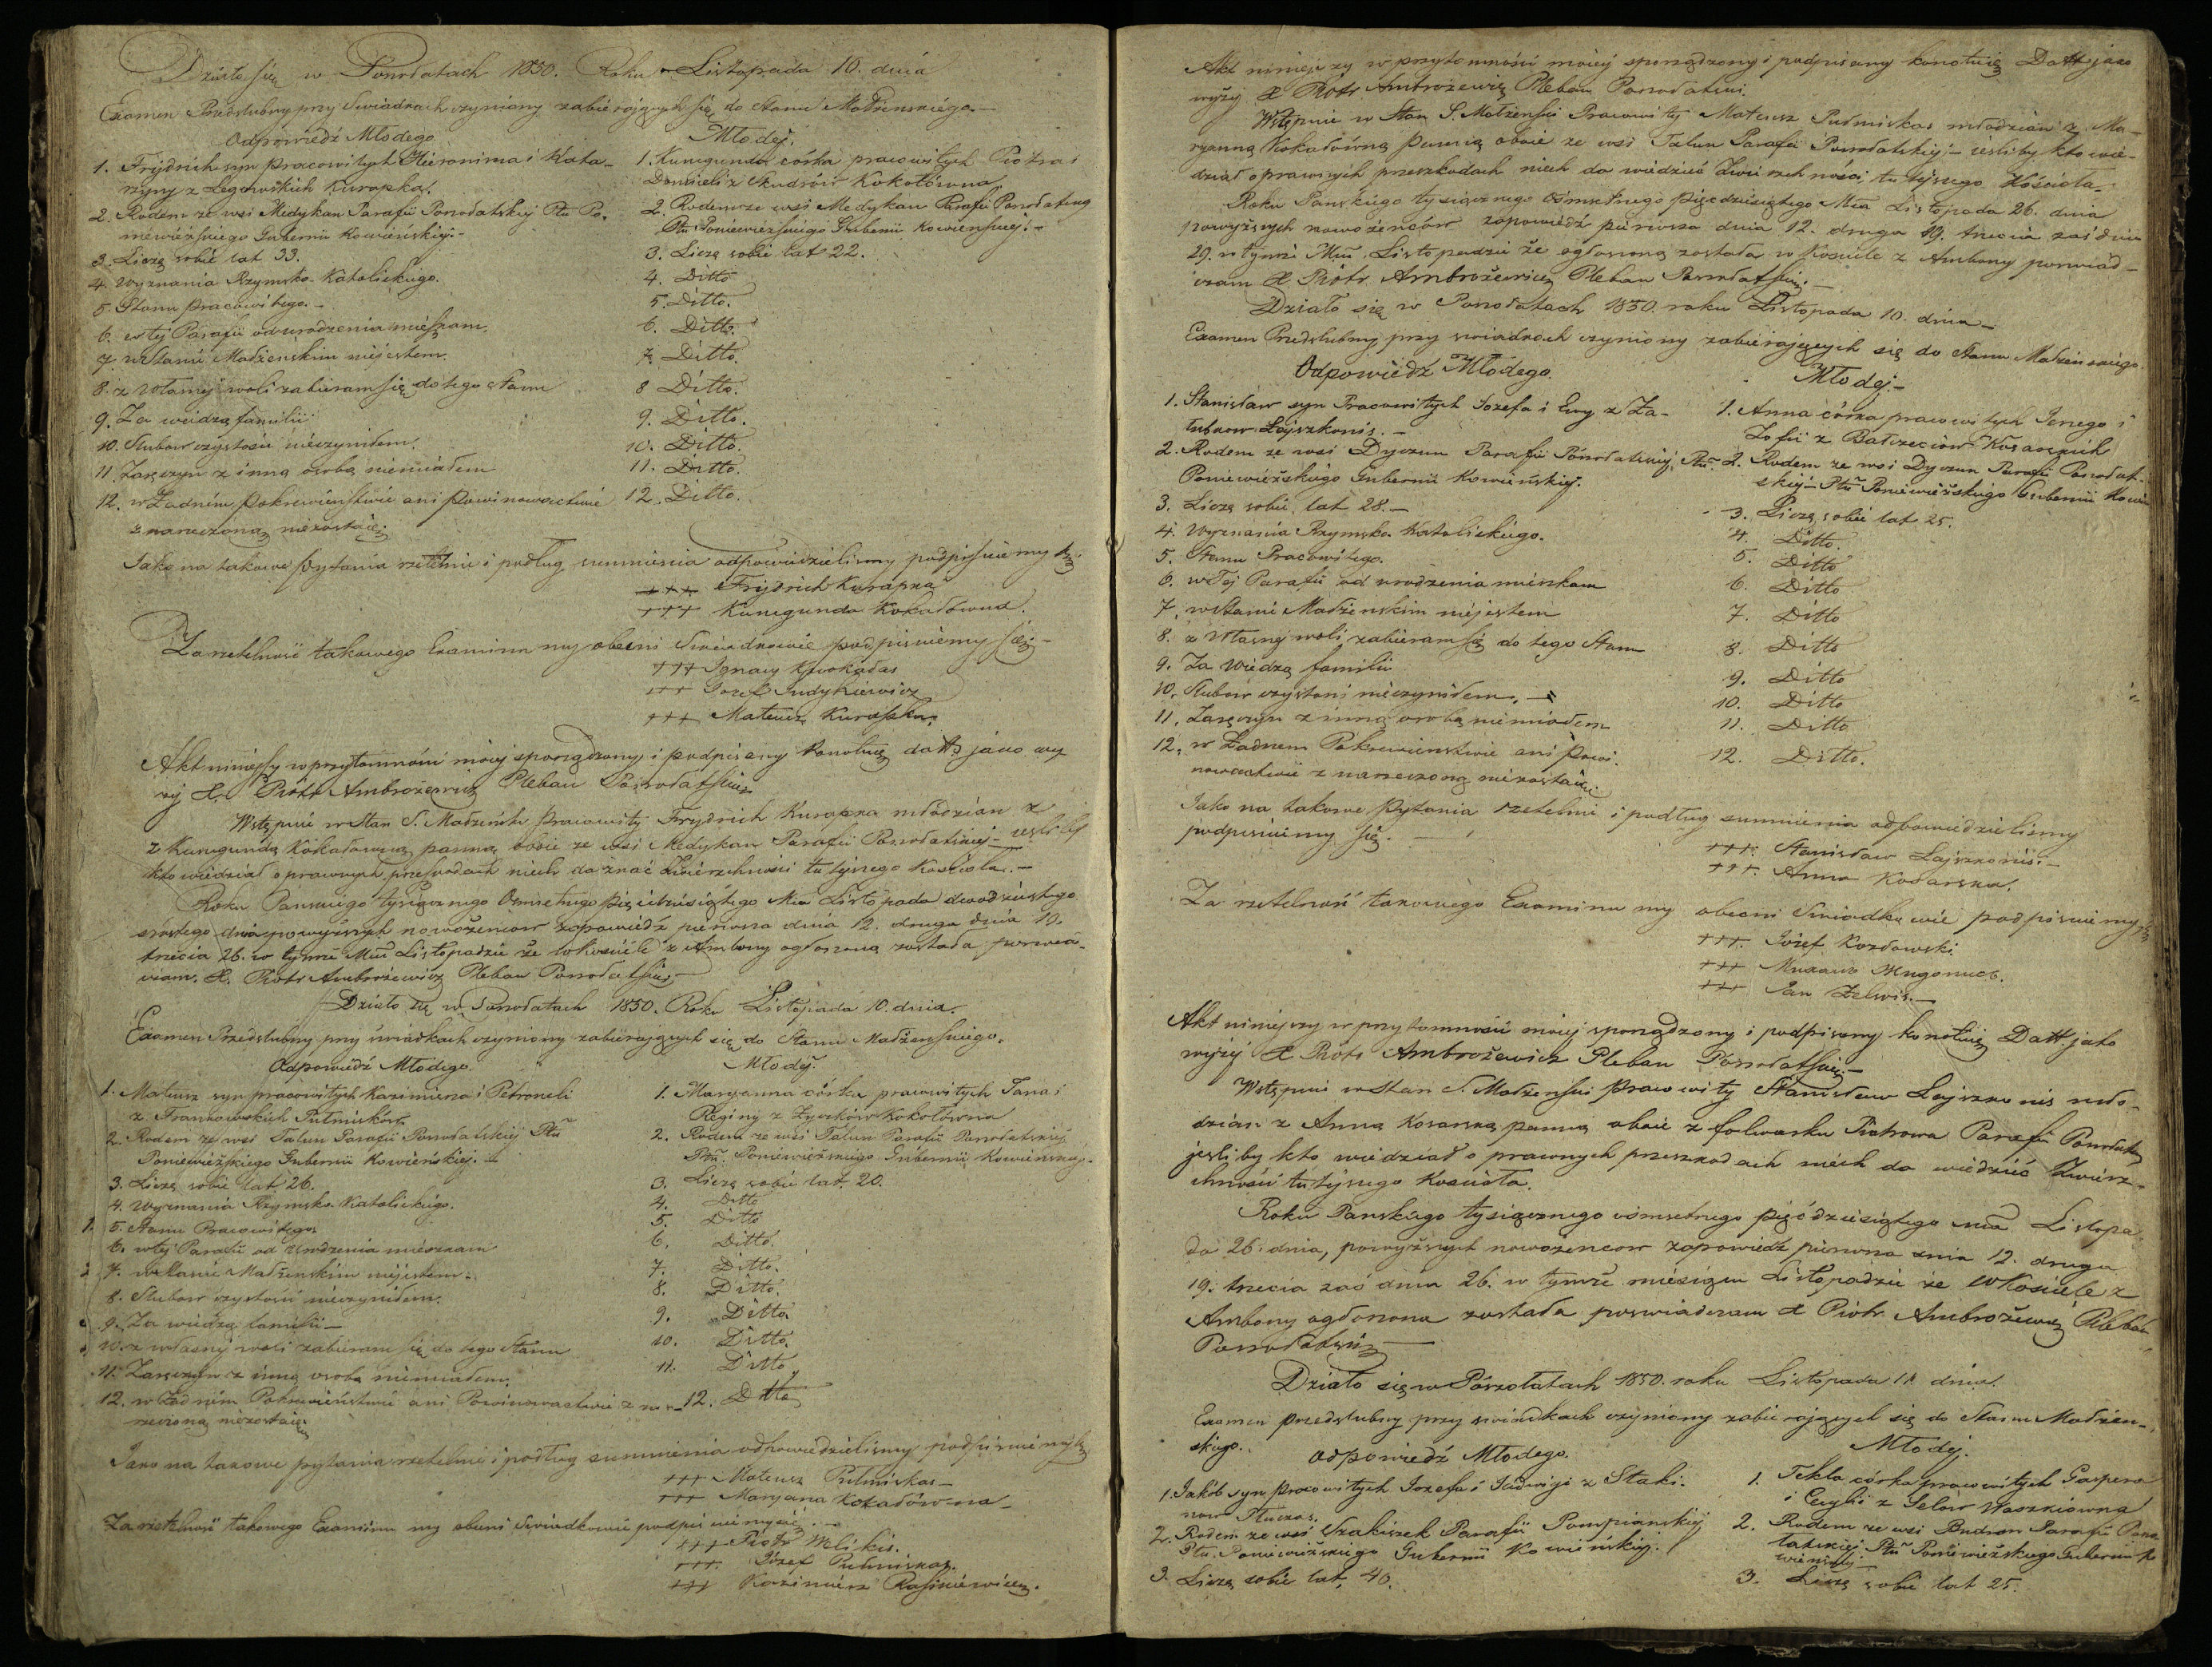 Działo się w Poszołatach 1850. Roku Listopada 10. dnia
Examen Przedslubny przy Swiadkach czyniony zabierających się do Stanu Małżenskiego.—
Odpowiedź Młodego.
1. Frydrich syn pracowitych Hieronima i Kata-
rzyny z Legowskich Kurapka.
2. Rodem ze wsi Medykan Parafii Poszołatskiej Ptu Po-
niewiéżskiego Gubernii Kowieńskiéj.-
3. Liczę sobie lat 33.
4. Wyznania Rzymsko-Katolickiego.
5. Stanu pracowitego.-
6. w tej Parafii od urodzenia mieszkam.
7. w Stanie Małżeńskim niejestem.
8. z Własnej woli zabieram się do tego Stanu
9. Za wiedzą familii
10. Slubow czystości nieczyniłem.
11. Zaręczyn z inną osobą niemiałem
12. w Żadném Pokrewienstwie ani Powinowactwie
z narzeczoną niezostaię.
Młodej.
1. Kunegunda córka pracowitych Piotra i
Domiceli z Skudrów Kokołówna
2. Rodem ze wsi Medykan Parafii Poszołatskiej
Ptu Poniewiéżskiego Gubernii Kowienskiej.-
3. Liczę sobie lat 22.
4. Ditto
5. Ditto.
6. Ditto.
7. Ditto.
8 Ditto.
9. Ditto.
10. Ditto.
11. Ditto.
12. Ditto.
Jako na takowe pytania rzetelnie i podług sumnienia odpowiedzielismy podpisuiemy się
+++ Frydrich Kurapka
+++ Kunegunda Kokołówna.
Za rzetelność takowego Examinu my obecni Swiadkowie podpisuiemy się.-
+++ Ignacy Kwokadas
+++ Jozef Judykiewicz
+++ Mateusz Kurapka.
Akt niniejszy w przytomności mojéj sporządzony i podpisany konotuię datt jako wy
żéj X. Piotr Ambrożewicz Pleban Poszołatski
Wstępuie w Stan S. Małżeński Pracowity Frydrich Kurapka młodzian z
z Kunegundą Kokołowną panną oboie ze wsi Medykan Parafii Poszołatskiej- jesliby
kto wiedział o prawnych przeszkodach niech da znać Zwierzchności tutejszego Kościoła.-
Roku Panskiego tysiącznego Osmsetnego pięcdziesiątego Mca Listopada dwudziestego
szóstego dnia powyższych nowożencow zapowiedź pierwsza dnia 12. druga dnia 19.
trzecia 26. w tymże Mcu Listopadzie że w kościele z Ambony ogłoszoną została poswiad-
czam. X. Piotr Ambrożewicz Pleban Poszołatski
Działo się w Poszołatach 1850. Roku Listopada 10. dnia.
Examen Przedslubny przy swiadkach czyniony zabierających się do Stanu Małżenskiego.
Odpowiedź Młodego.
1. Mateusz syn pracowitych Kazimierza i Petroneli
z Frankowskich Putmiskas.
2. Rodem ze wsi Talun Parafii Poszołatskiej Ptu
Poniewiéżskiego Gubernii Kowieńskiej.-
3. Liczę sobie lat 26.
4. Wyznania Rzymsko-Katolickiego.
5. Stanu Pracowitego.
6. w tej Parafii od urodzenia mieszkam
7. w Stanie Małżenskim niejestem.
8. Slubow czystości nieczyniłem.
9. Za wiedzą familii-
10. z własnej woli zabieram się do tego Stanu
11. Zaręczyn z inną osobą niemiałem.
12. w Żadnim Pokrewieństwie ani Powinowactwie z na-
rzeczoną niezostaię.
Młodej.
1. Maryanna córka pracowitych Jana i
Reginy z Życzków Kokołówna
2. Rodem ze wsi Talun Parafii Poszołatskiej
Ptu. Poniewiéżskiego Gubernii Kowienskiej.
3. Liczę sobie lat. 20.
4. Ditto
5. Ditto
6. Ditto.
7. Ditto.
8. Ditto.
9. Ditto.
10. Ditto.
11. Ditto
12. Ditto
Jako na takowe pytania rzetelnie i podług sumnienia odpowiedzielismy podpisuiemy się
+++ Mateusz Putmiskas-
+++ Maryana Kokołówna-
Za rzetelność takowego Examinu my obecni Swiadkowie podpisuiemy się.-
+++ Piotr Welikis.
+++ Józef Putmiskas.
+++ Kazimiérz Rasimowicz.
Akt niniejszy w przytomności mojéj sporządzony i podpisany konotuię Datt jako
wyżej X Piotr Ambrożewicz Pleban Poszołatski
Wstępuie w Stan S. Małżeński Pracowity Mateusz Putmiskas młodzian z Ma-
ryanną Kokołówną Panną oboie ze wsi Talun Parafii Poszołatskiej- jesliby kto wie-
dział o prawnych przeszkodach niech da wiedzieć Zwierzchności tutejszego Kościoła-
Roku Panskiego tysiącznego Ośmsetnego pięcdziesiątego Mca Listopada 26. dnia
powyższych nowożencow zapowiedź pierwsza dnia 12. druga 19. trzecia zaś dnia
29. w tymże Mcu Listopadzie że ogłoszoną została w Kosciele z Ambony poswiad-
czam X Piotr Ambrożewicz Pleban Poszołatski.-
Działo się w Poszołatach 1850. roku Listopada 10. dnia-
Examen Przedslubny przy swiadkach czyniony zabierających się do Stanu Małżenskiego.
Odpowiedź Młodego.
1. Stanisław syn Pracowitych Jozefa i Ewy z Za-
łubnow Łajszkonis.-
2. Rodem ze wsi Dyczun Parafii Poszołatskiej Ptu.
Poniewiéżskiego Gubernii Kowieńskiej.
3. Liczę sobie lat 28.-
4. Wyznania Rzymsko-Katolickiego.
5. Stanu Pracowitego.
6. w Tej Parafii od urodzenia mieszkam
7. w Stanie Małżenskim niejestem
8. z Własnej woli zabieram się do tego Stanu
9. Za Wiedzą familii
10. Slubow czystosci nieczyniłem.-
11. Zaręczyn z inną osobą niemiałem
12. w Żadnem Pokrewienstwie ani Powi-
nowactwie z narzeczoną niezostaię.
Młodej-
1. Anna córka pracowitych Jerzego i
Zofii z Balczeciow Kosarskich
2. Rodem ze wsi Dyczun Parafii Poszołat-
skiej- Ptu Poniewiéżskiego Gubernii Kowie
3. Liczę sobie lat 25.
4. Ditto.
5. Ditto
6. Ditto
7. Ditto
8. Ditto
9. Ditto
10. Ditto
11. Ditto
12. Ditto.
Jako na takowe Pytania rzetelnie i podług sumnienia odpowiedzielismy
podpisuiemy się.-
+++. Stanisław Łajszkonis.-
+++. Anna Kosarska.
Za rzetelność takowego Examinu my obecni Swiadkowie podpisuiemy się
+++. Józef Kozłowski.
+++
+++ Jan Żelwis.-
Akt niniejszy w przytomności mojej sporządzony i podpisany konotuię Datt jako
wyżéj X Piotr Ambrożewicz Pleban Poszołatski-
Wstępuie w Stan S. Małżeński pracowity Stanisław Łajszkonis mło-
dzian z Anną Kosarską panną oboie z folwarku Piotrowa Parafii Poszołat
jesliby kto wiedział o prawnych przeszkodach niech da wiedzieć Zwierz-
chności tutejszego Kosciola.
Roku Panskiego tysiącznego ósmsetnego pięćdziesiątego mca Listopa-
da 26. dnia, powyższych nowożencow zapowiedź pierwsza dnia 12. druga
19. trzecia zaś dnia 26. w tymże miesiącu Listopadzie że w Kościele z
Ambony ogłoszona została poswiadczam X Piotr Ambrożewicz Pleban
Poszołatski
Działo się w Poszołatach 1850. roku Listopada 11 dnia.
Examen przedslubny przy swiadkach czyniony zabierających się do Stanu Małżen-
skiego.
Odpowiedź Młodego.
1. Jakób syn Pracowitych Jozefa i Jadwigi z Staki-
now Tluczas.
2. Rodem ze wsi Szakiszek Parafii Pompianskiej
Ptu. Poniewiéżskiego Gubernii Kowieńskiej.
3. Liczę sobie lat. 40.
Młodej.
1. Tekla córka pracowitych Gaspera
i Cecylii z Selow Waszkiewna
2. Rodem ze wsi Budron Parafii Poszo
łatskiej Ptu Poniewiéżskiego Gubernii Ko
wieńskiej
3. Liczę sobie lat 25.